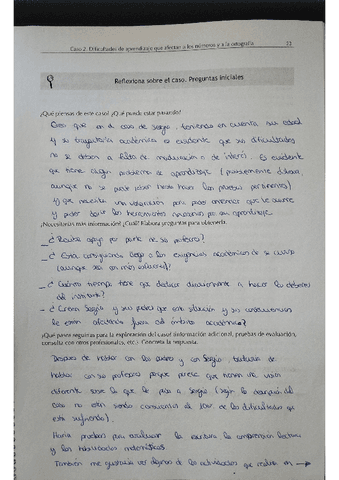 Caso 2. Dificultades de aprendizaje que afectan a los números y a la ortografía 33
Reflexiona sobre el caso. Preguntas iniciales
¿Qué piensas de este caso? ¿Qué puede estar pasando?
Creo que en el caso de Sergio, teniendo en cuenta su edad
y su trayectoria académica es evidente que sus dificultades
no se deben a falta de maduración o de interés. Es evidente
que tiene algún problema de aprendizaje (
aunque no se puede saber hasta hacer las pruebas pertinentes)
y que necesita una valoración para poder entender que le ocurre
y poder darle las herramientas necesarias para su aprendizaje.
¿Necesitarías más información? ¿Cuál? Elabora preguntas para obtenerla.
- ¿Recibe apoyo por parte de su profesora?
- ¿Está consiguiendo llegar a las exigencias académicas de su curso
(aunque sea con más esfuerzo)?
- ¿Cuánto tiempo tiene que dedicar diariamente a hacer los deberes
del instituto?
- ¿Creen Sergio y sus padres que esta situación y sus consecuencias
le están afectando fuera del ámbito académico?
¿Qué pasos seguirías para la exploración del caso? (información adicional, pruebas de evaluación,
consulta con otros profesionales, etc.) Concreta la respuesta.
Después de hablar con los padres y con Sergio, trataría de
hablar con su profesora porque parece que tienen una visión
diferente sobre lo que le pasa a Sergio (según la descripción del
caso no están siendo conscientes al 100% de las dificultades que
está sufriendo).
Haría pruebas para evaluar la escritura, la comprensión lectora
y las habilidades matemáticas.
También me gustaría ver algunas de las actividades que realiza en